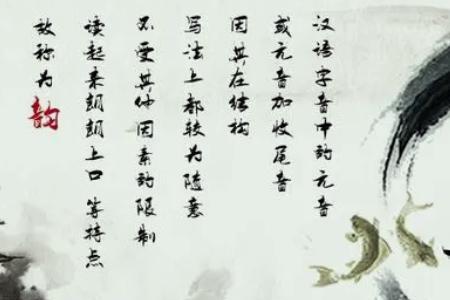 汉语字音中的元音
或元音加收尾音
因其在结构
写法上都较为随意
不受其他因素的限制
读起来朗朗上口 等特点
故称为韵